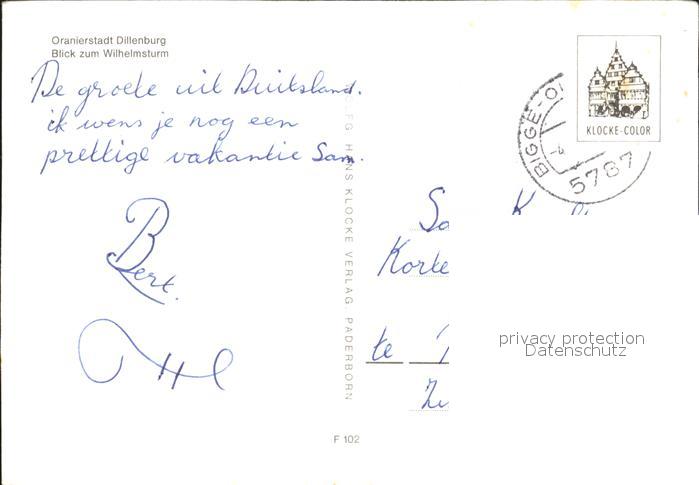 Oranierstadt Dillenburg
Blick zum Wilhelmsturm
De groete uit Duitsland.
ik wens je nog een
prettige vakantie Sam.
Bert.
HANS KLOCKE VERLAG PADERBORN
KLOCKE-COLOR
BIGGE-Ol
5787
Korte
te
privacy protection
Datenschutz
F 102